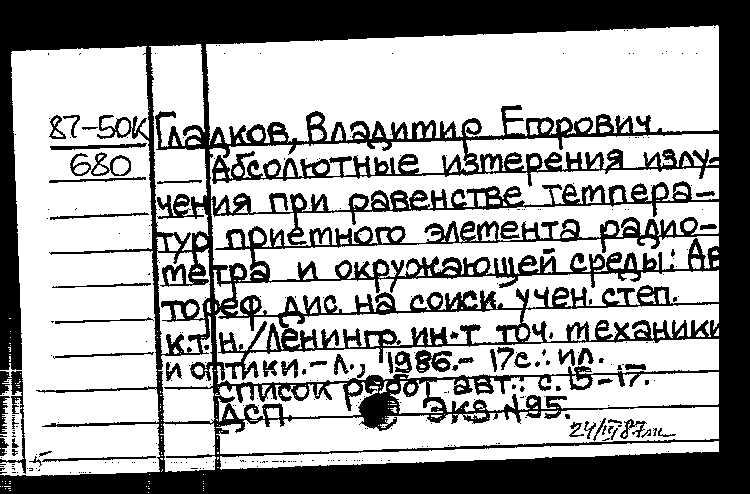 87-50К Гладков, Владимир Егорович.
680 Абсолютные измерения излу-
чения при равенстве темпера-
тур приемного элемента радио-
метра и окружающей среды: Ав
тореф. дис. на соиск. учен. степ.
к.т.н./Ленингр. ин-т точ. механики
и оптики.-Л., 1986.- 17с.: ил.
Список работ авт.: с.15-17.
ДСП. Экз. №95.